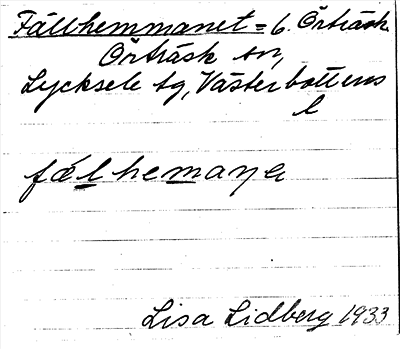 Fällhemmanet = 6. Örträsk.
Örträsk sn,
Lycksele tg, Västerbottens
l
fælhemaŋɐ
Lisa Lidberg 1933